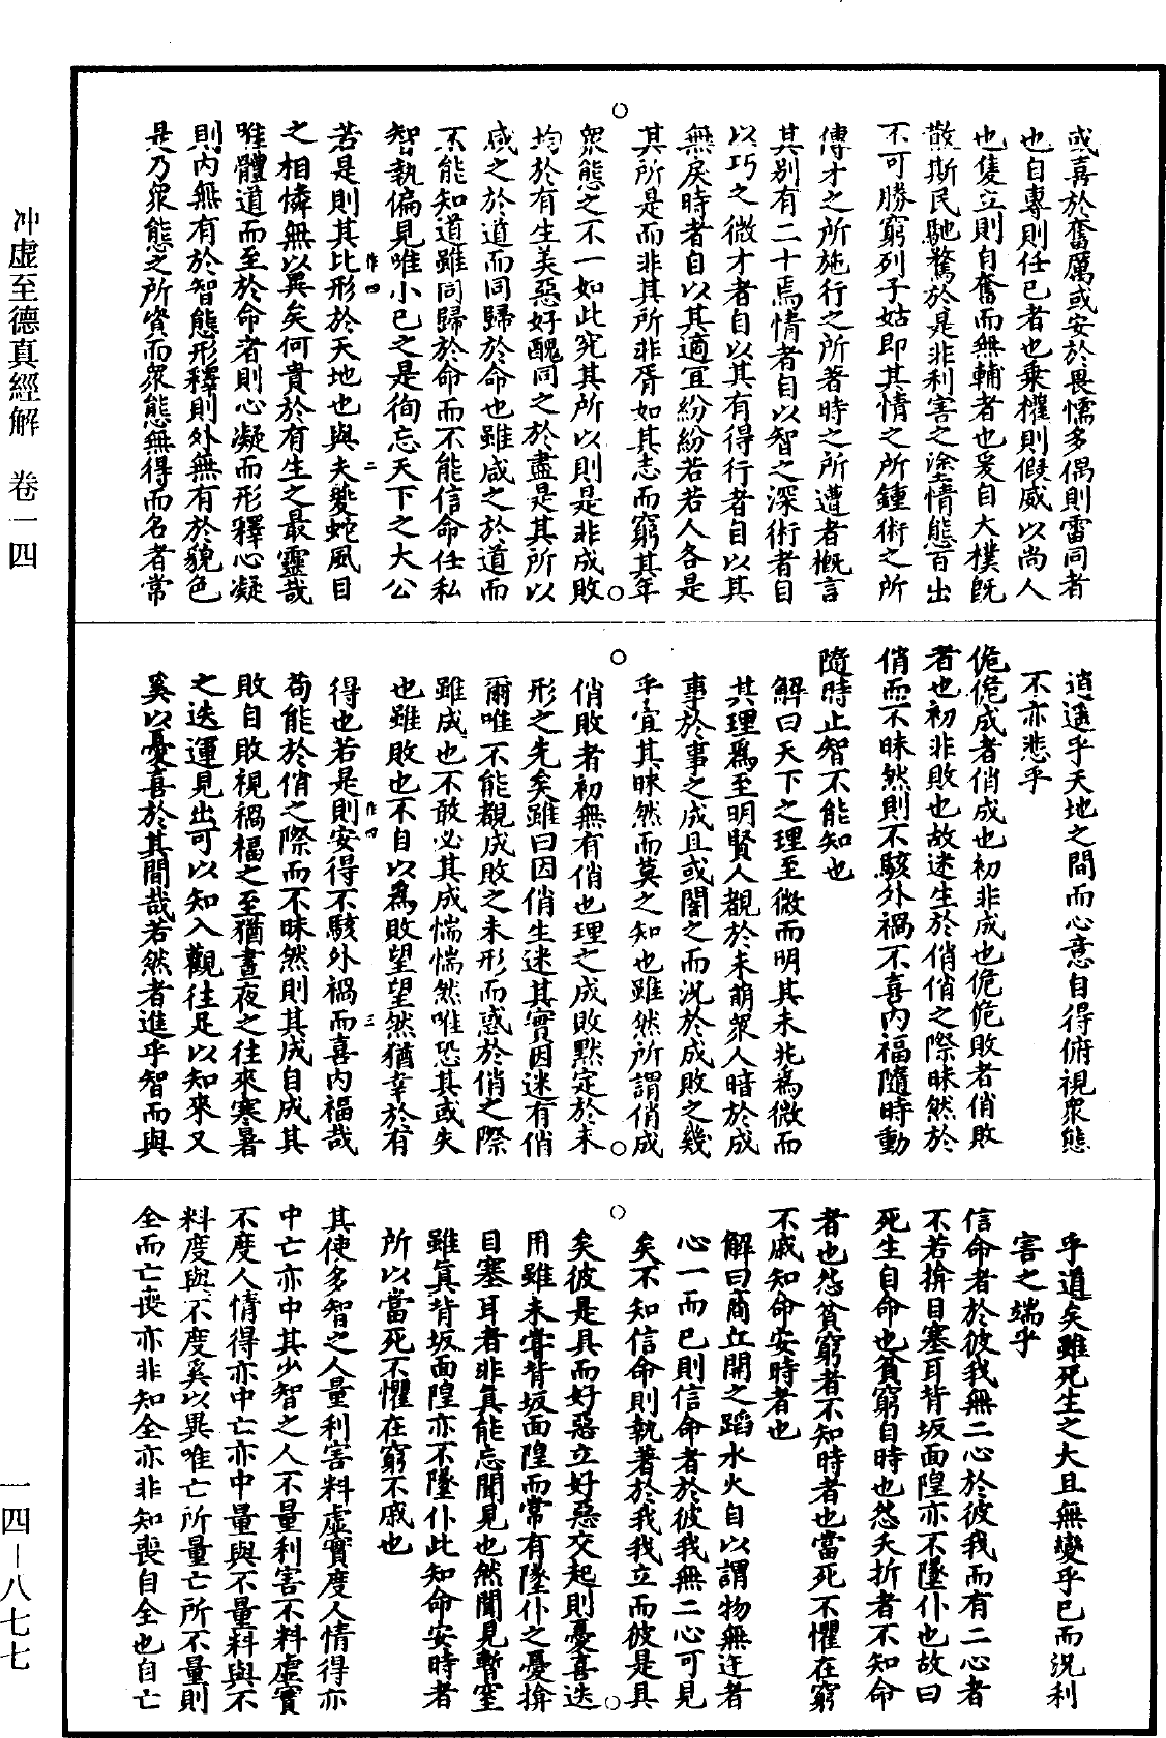 或喜於奮厲或安於畏懦多偶則雷同者
也自專則任己者也乗權則假威以尚人
也隻立則自奮而無輔者也爰自大樸既
散斯民馳騖於是非利害之塗情態百出
不可勝窮列子姑即其情之所鍾術之所
傳才之所施行之所著時之所遭者概言
其別有二十焉情者自以智之深術者自
以巧之微才者自以其有得行者自以其
無戾時者自以其適宜紛紛若若人各是
其所是而非其所非胥如其志而窮其年
眾態之不一如此究其所以則是非成敗
均於有生美惡好醜同之於盡是其所以
咸之於道而同歸於命也雖咸之於道而
不能知道雖同歸於命而不能信命任私
智執偏見唯小己之是徇忘天下之大公
若是則其比形於天地也與夫夔蛇風目
之相憐無以異矣何貴於有生之最靈哉
唯體道而至於命者則心凝而形釋心凝
則內無有於智態形釋則外無有於貌色
是乃眾態之所資而眾態無得而名者常
逍遥乎天地之間而心意自得俯視眾態
不亦悲乎
佹佹成者俏成也初非成也佹佹敗者俏敗
者也初非敗也故迷生於俏俏之際昧然於
俏而不昧然則不駭外禍不喜內福隨時動
隨時止智不能知也
解曰天下之理至微而明其未兆為微而
其理為至明賢人覩於未萌眾人暗於成
事於事之成且或闇之而況於成敗之幾
乎宜其昧然而莫之知也雖然所謂俏成
俏敗者初無有俏也理之成敗默定於未
形之先矣雖曰因俏生迷其實因迷有俏
爾唯不能覩成敗之未形而惑於俏之際
雖成也不敢必其成惴惴然唯恐其或失
也雖敗也不自以為敗望望然猶幸於有
得也若是則安得不駭外禍而喜內福哉
苟能於俏之際而不昧然則其成自成其
敗自敗視禍福之至猶晝夜之往來寒暑
之迭運見出可以知入觀往足以知來又
奚以憂喜於其間哉若然者進乎智而與
乎道矣雖死生之大且無變乎己而況利
害之端乎
信命者於彼我無二心於彼我而有二心者
不若揜目塞耳背坂面隍亦不墜仆也故曰
死生自命也貧窮自時也怨夭折者不知命
者也怨貧窮者不知時者也當死不懼在窮
不戚知命安時者也
解曰商丘開之蹈水火自以謂物無迕者
心一而已則信命者於彼我無二心可見
矣不知信命則執著於我我立而彼是具
矣彼是具而好惡立好惡交起則憂喜迭
用雖未嘗背坂面隍而常有墜仆之憂揜
目塞耳者非真能忘聞見也然聞見暫窒
雖真背坂面隍亦不墜仆此知命安時者
所以當死不懼在窮不戚也
其使多智之人量利害料虛實度人情得亦
中亡亦中其少智之人不量利害不料虛實
不度人情得亦中亡亦中量與不量料與不
料度與不度奚以異唯亡所量亡所不量則
全而亡喪亦非知全亦非知喪自全也自亡
冲虛至德真經解 卷一四
一四－八七七